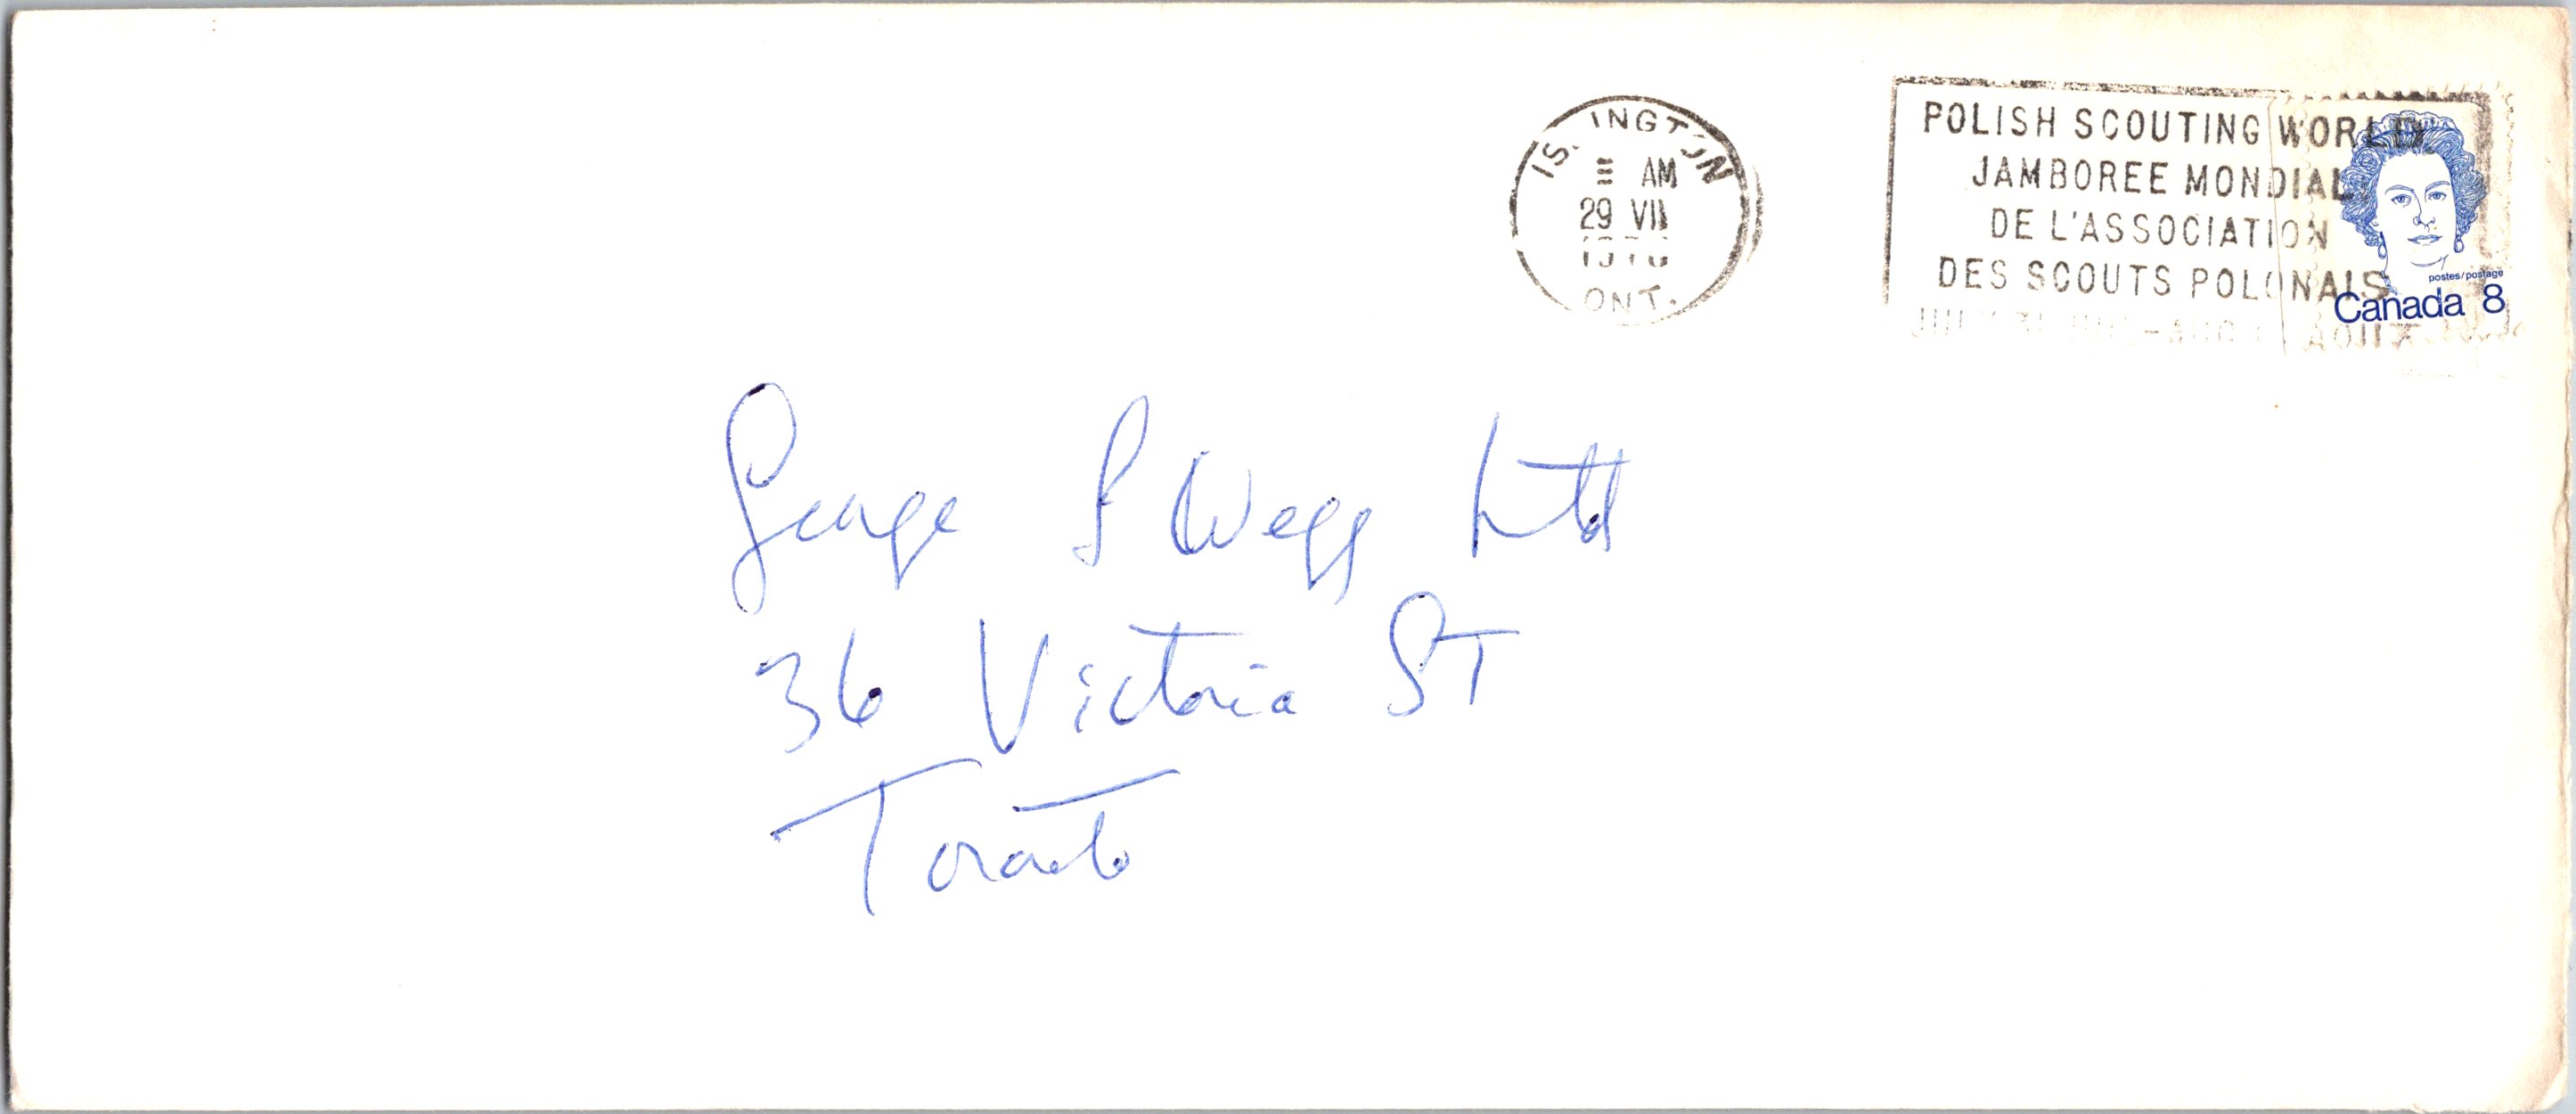 ISLINGTON
AM
29 VII
1976
ONT.
POLISH SCOUTING WORLD
JAMBOREE MONDIAL
DE L'ASSOCIATION
DES SCOUTS POLONAIS
postes/postage
Canada 8
George S Wegg Ltd
36 Victoria ST
Toronto